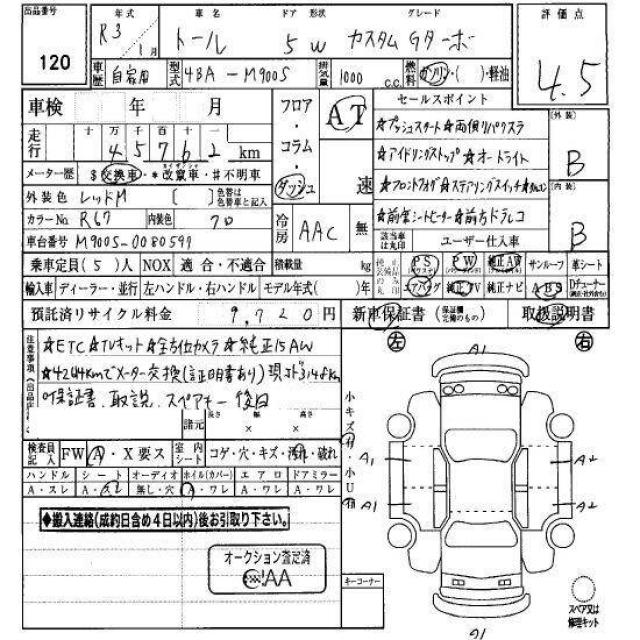 出品番号
120
年式
R3年
1月
車名
トール
ドア 形状
5 W
グレード
カスタムGターボ
評価点
4.5
車歴
自家用
型式
4BA-M900S
排気量
1000 c.c.
燃料
ガソリン・( )・軽油
車検 年 月
走行
十 万 千 百 十 一
4 5 7 6 2 km
メーター歴
$交換車・*改竄車・#不明車
外装色
レッドM
[ ] 色替は色替車と記入
カラーNo.
R67
内装色
70
車台番号
M900S-0080599
フロア・コラム・ダッシュ
AT
速
冷房
AAC
無
セールスポイント
☆プッシュスタート☆両側リパクスラ
☆アイドリングストップ☆オートライト
☆フロントフォグ☆ステアリングスイッチ
☆前席シートヒーター☆前方ドラレコ
該当車は丸印
ユーザー仕入車
[外装]
B
[内装]
B
乗車定員(5)人
NOX
適合・不適合
積載量 kg
PS
PW
純正AW
サンルーフ
革シート
輸入車
ディーラー・並行
左ハンドル・右ハンドル
モデル年式( )年
エアバッグ
純正TV
純正ナビ
ABS
Dチューナー
預託済リサイクル料金
9,720円
新車保証書
(保証欄完備のもの)
取扱説明書
注意事項
☆ETC☆TVキット☆全方位カメラ☆純正15AW
☆42414kmでメーター交換(証明書あり)現メーター3148km
保証書、取説、スペアキー後日
諸元
長さ 幅 高さ
× ×
検査員記入
FW A・X要ス
室内シート
コゲ・穴・キズ・汚れ・破れ
ハンドル シート オーディオ ホイル(カバー) エアロ ドアミラー
A・スレ A・スレ 無し・穴 A・ワレ A・ワレ A・ワレ
◆搬入連絡(成約日含め4日以内)後お引取り下さい。
オークション査定済
JAA
左
右
A1
A1
A2
A1
A2
小キズ有
小U有
キーコーナー
スペア又は
修理キット